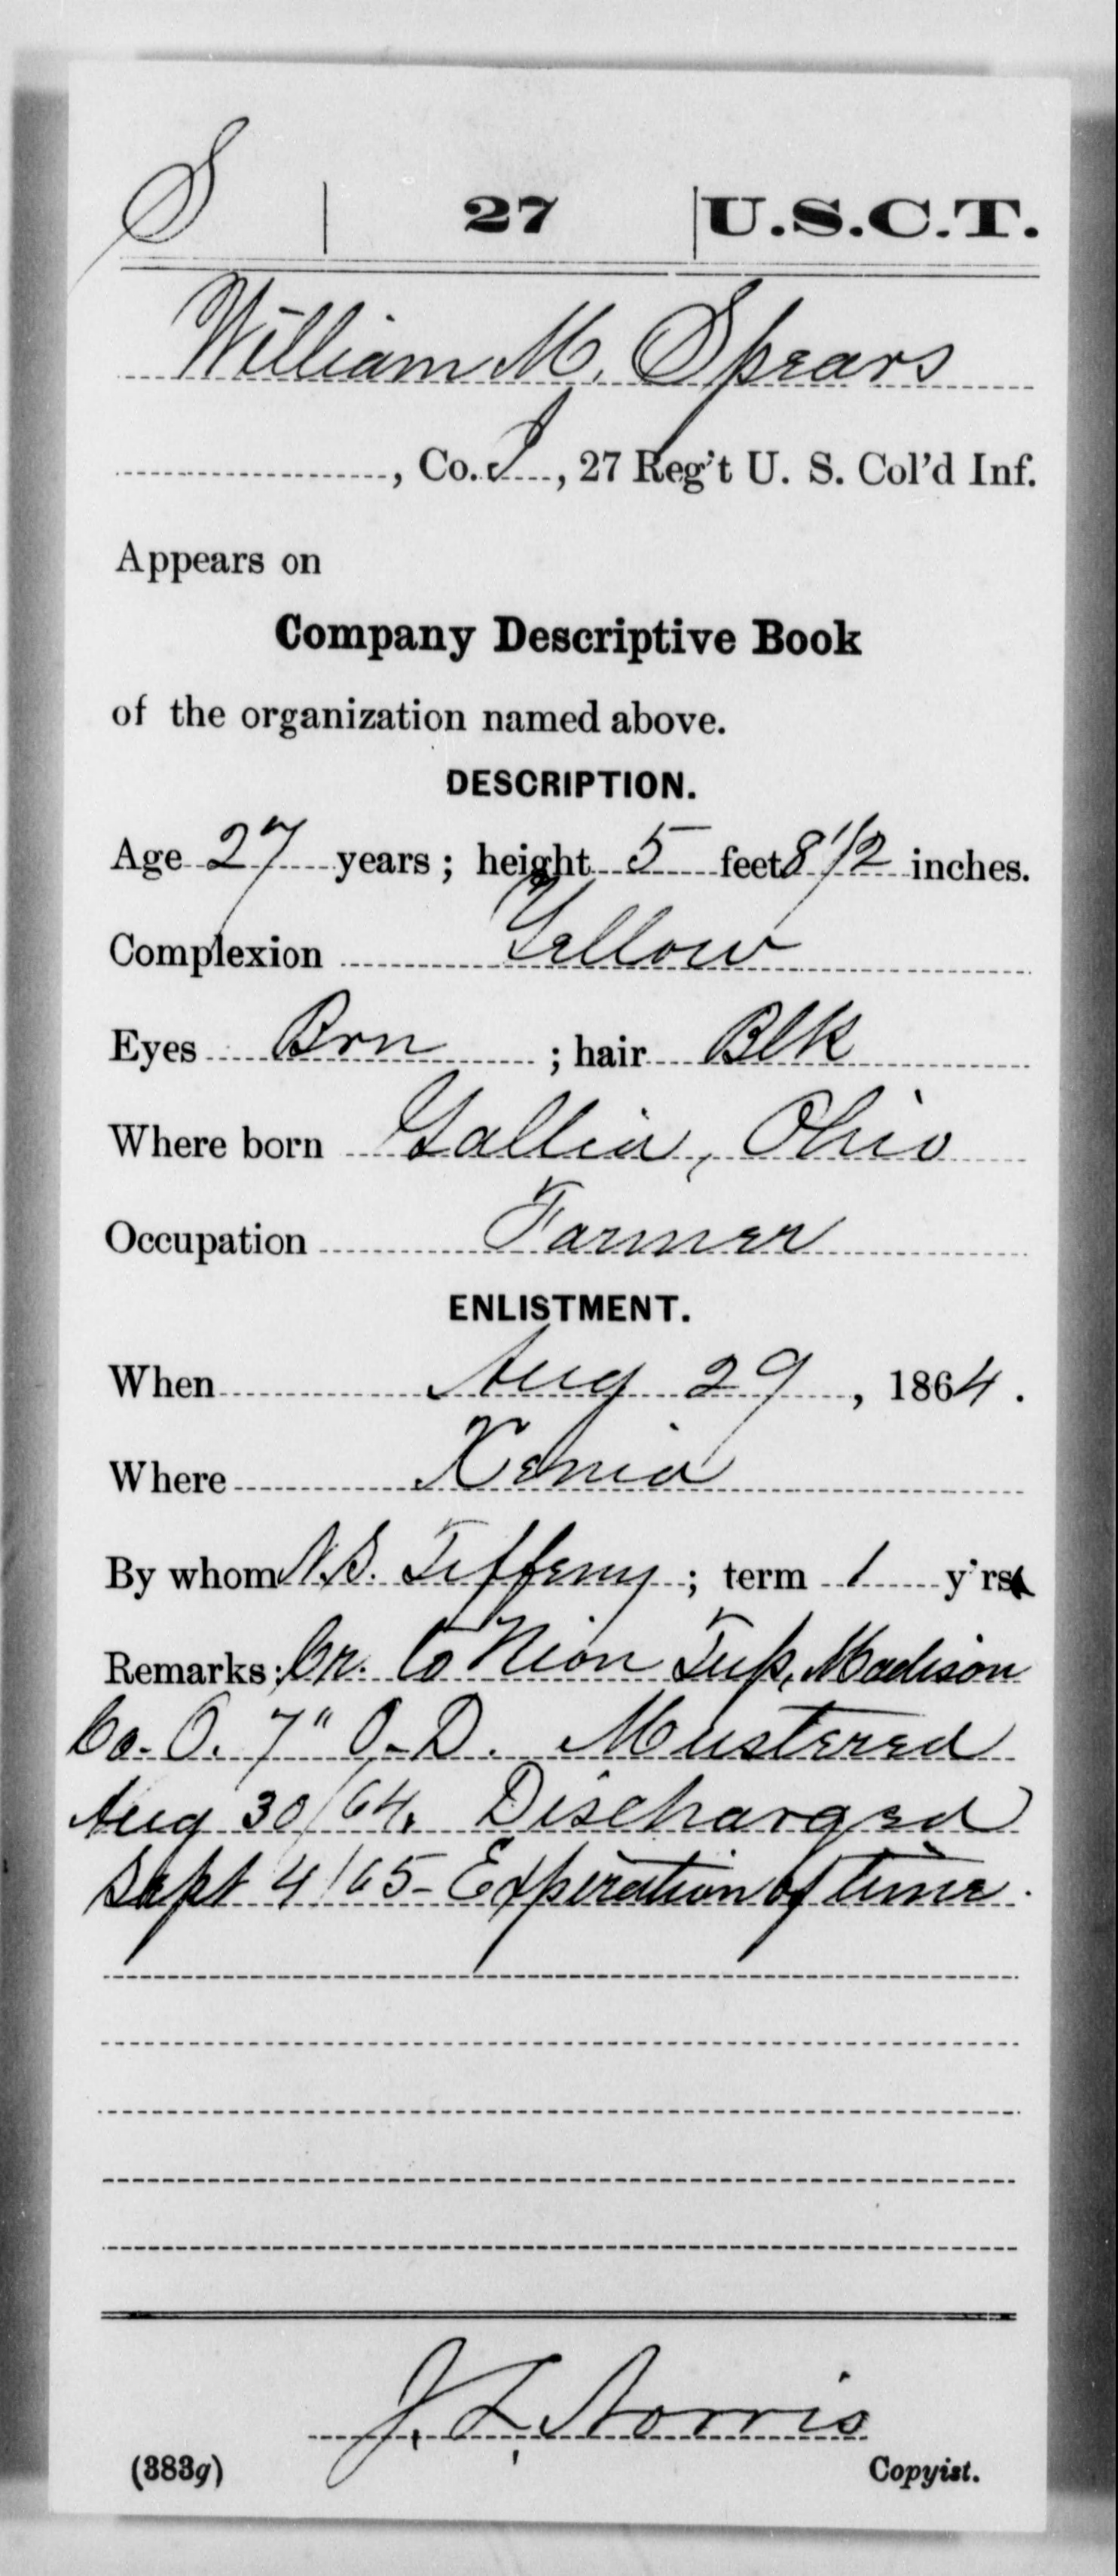 S | 27 | U.S.C.T.
William M. Spears
, Co. I, 27 Reg't U. S. Col'd Inf.
Appears on
Company Descriptive Book
of the organization named above.
DESCRIPTION.
Age 27 years; height 5 feet 8 1/2 inches.
Complexion Yellow
Eyes Brn ; hair Blk
Where born Gallia, Ohio
Occupation Farmer
ENLISTMENT.
When Aug 29, 1864.
Where Xenia
By whom N.S. Tiffeny; term 1 y'rs
Remarks: Cr. to Twp, Madison
Co. O. 7" O-D. Mustered
Aug 30/64. Discharged
Sept 4/65- Expiration of time.
J. L. Norris
(383g) Copyist.